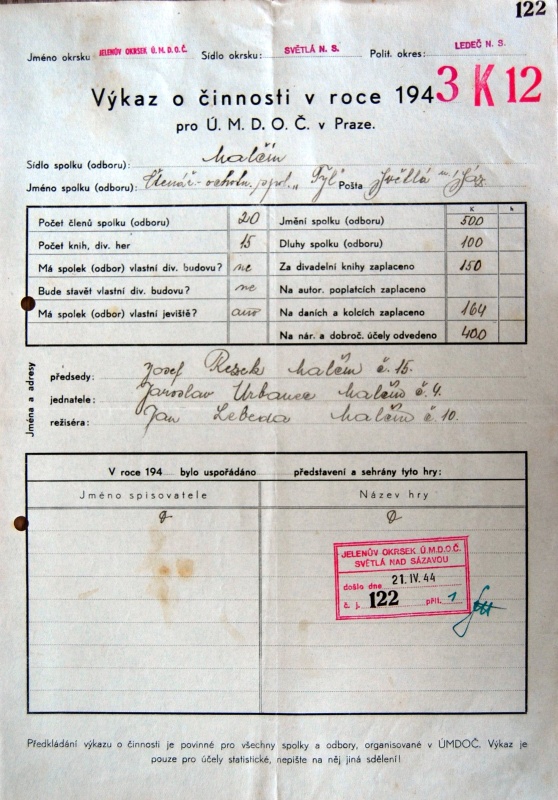 122
Jméno okrsku JELENŮV OKRSEK Ú.M.D.O.Č. Sídlo okrsku: SVĚTLÁ N. S. Polit. okres: LEDEČ N. S.
Výkaz o činnosti v roce 1943 K 12
pro Ú. M. D. O. Č. v Praze.
Sídlo spolku (odboru): Malčín
Jméno spolku (odboru): Čtenář.-ochotn. spol. „Tyl" Pošta Světlá n/Sáz
K h
Počet členů spolku (odboru) 20 Jmění spolku (odboru) 500
Počet knih, div. her 15 Dluhy spolku (odboru) 100
Má spolek (odbor) vlastní div. budovu? ne Za divadelní knihy zaplaceno 150
Bude stavět vlastní div. budovu? ne Na autor. poplatcích zaplaceno
Má spolek (odbor) vlastní jeviště? ano Na daních a kolcích zaplaceno 164
Na nár. a dobroč. účely odvedeno 400
Jména a adresy
předsedy: Josef Resek Malčín č. 15.
jednatele: Jaroslav Urbanec Malčín č. 4.
režiséra: Jan Lebeda Malčín č. 10.
V roce 194 bylo uspořádáno představení a sehrány tyto hry:
Jméno spisovatele Název hry
JELENŮV OKRSEK Ú.M.D.O.Č.
SVĚTLÁ NAD SÁZAVOU
došlo dne 21. IV. 44
č. j. 122 příl. 1
Předkládání výkazu o činnosti je povinné pro všechny spolky a odbory, organisované v ÚMDOČ. Výkaz je
pouze pro účely statistické, nepište na něj jiná sdělení!